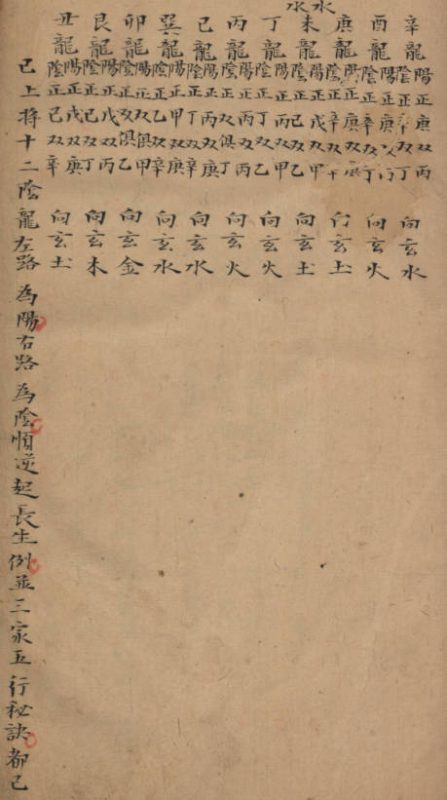 水水
辛龍陽正庚双丙陰正辛双丁向玄水
酉龍陽正庚双丙陰正辛双丁向玄火
庚龍陽正庚双庚陰正辛双辛向玄土
未龍陽正戊双甲陰正己双乙向玄土
丁龍陽正丙双甲陰正丁双乙向玄火
丙龍陽正双俱丙陰正双俱丁向玄火
巳龍陽正丙双庚陰正丁双辛向玄水
巽龍陽正甲双庚陰正乙双辛向玄水
卯龍陽正双俱甲陰正双俱乙向玄金
艮龍陽正戊双丙陰正己双丁向玄木
丑龍陽正戊双庚陰正己双辛向玄土
已上將十二陰龍左路為陽右路為陰順逆起長生例並三家五行秘訣都已